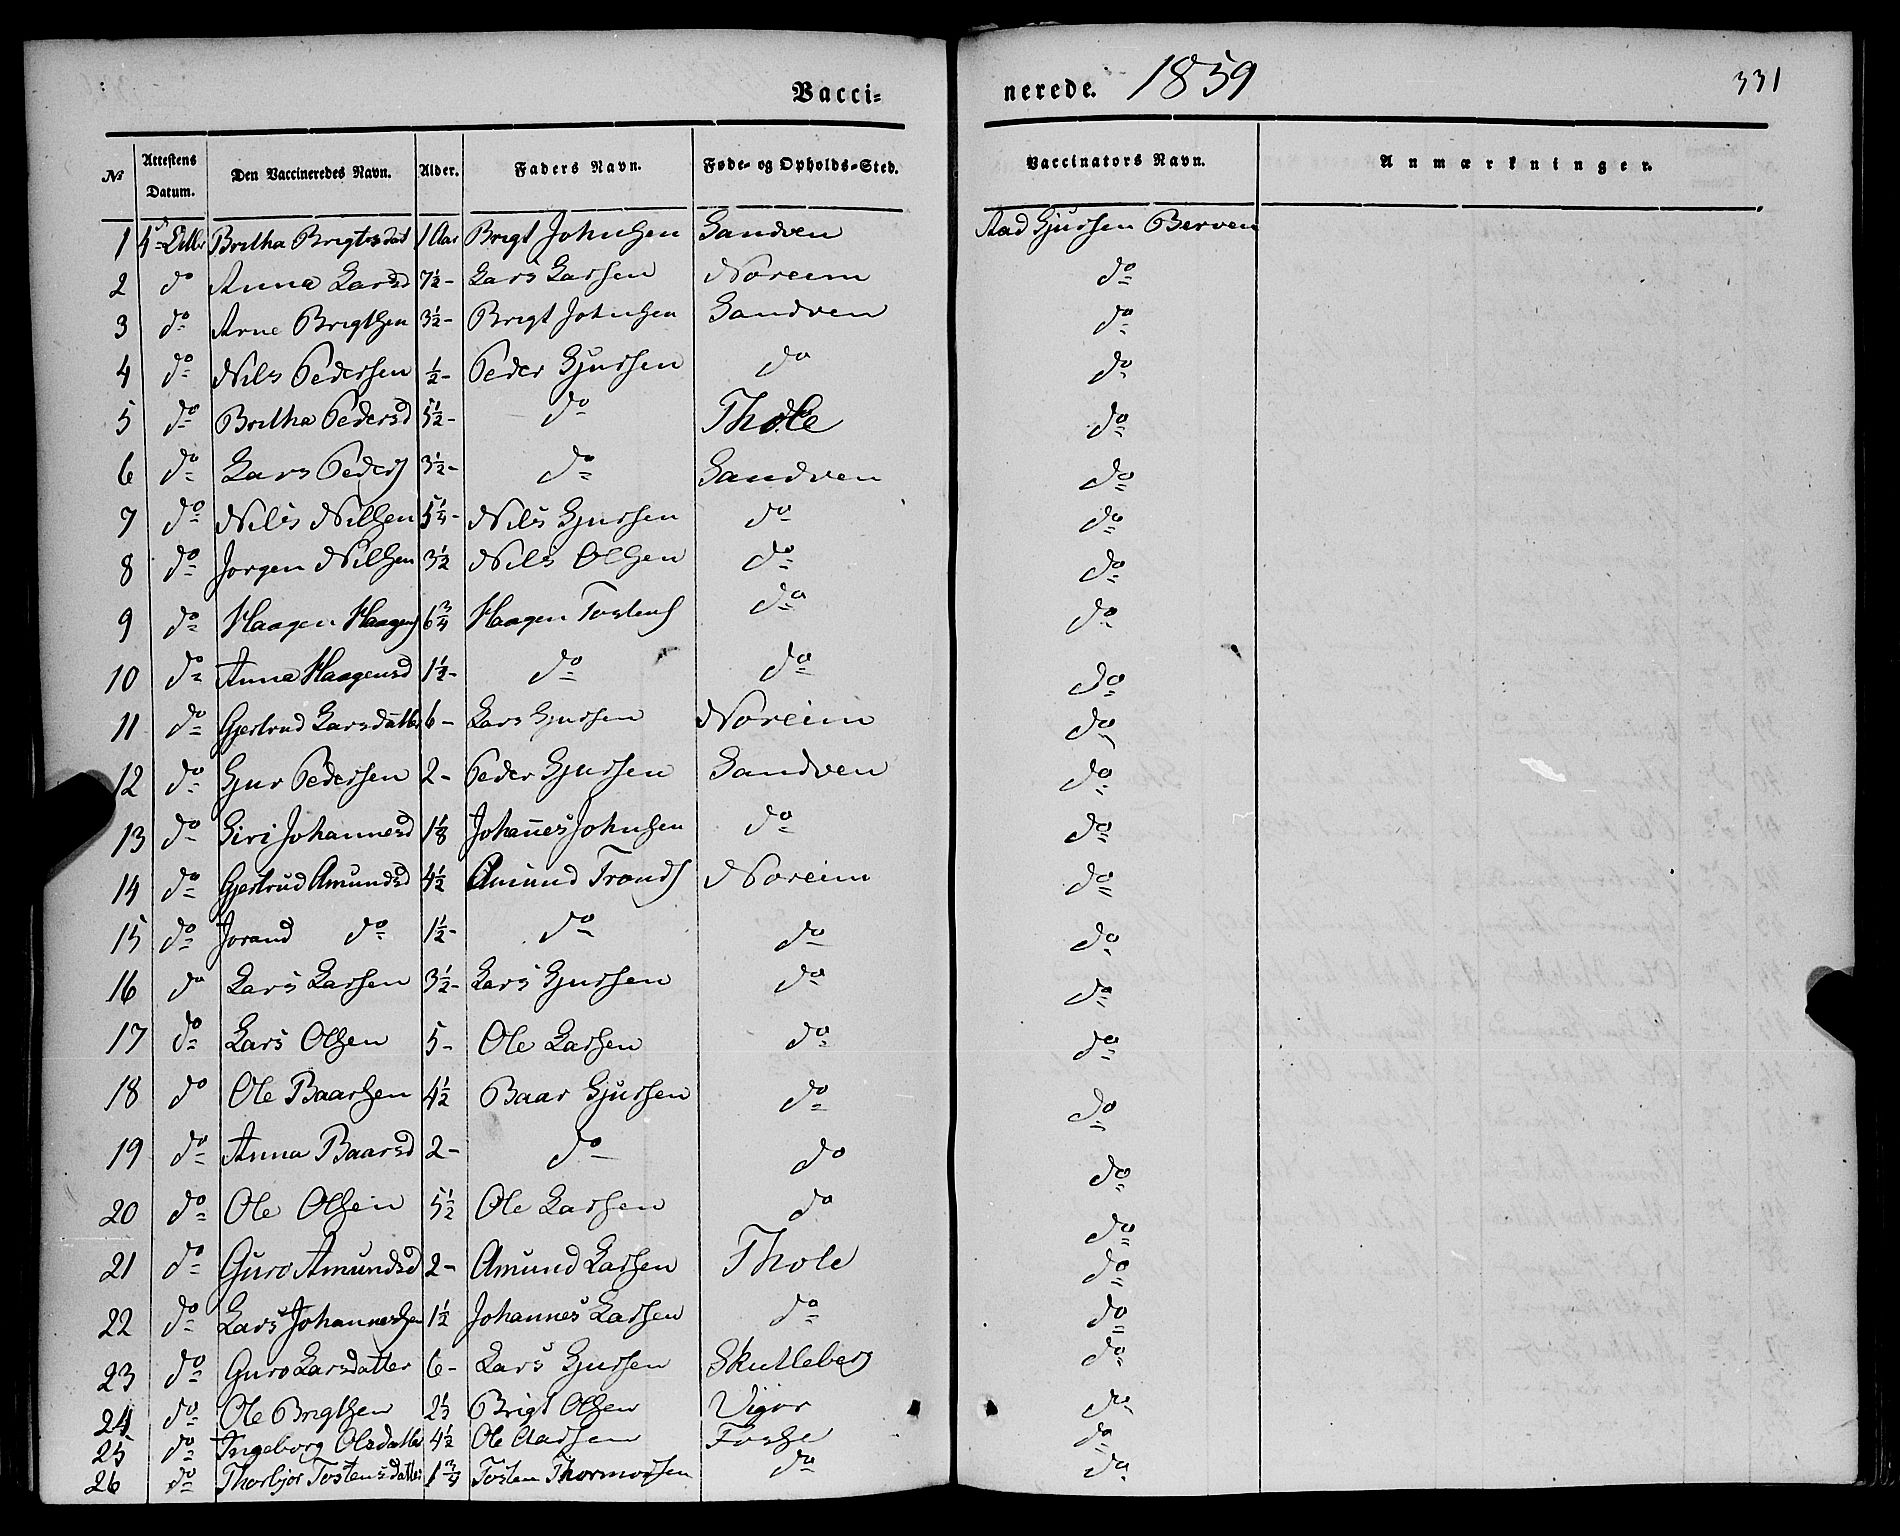 Vacci= nerede. 1859 331
No Attestens Datum. Den Vaccineredes Navn. Alder. Faders Navn. Føde- og Opholds-Sted. Vaccinators Navn. Anmærkninger.
1 Britha Brigtsdat 1 Aar Brigt Johnsen Sandven Aad Gjursen Berven
2 do Anna Larsd 7½- Lars Larsen Noreim do
3 do Arne Brigtsen 3½- Brigt Johnsen Sandven do
4 do Nils Pedersen ½- Peder Gjursen do do
5 do Britha Pedersd 5½- do Thole do
6 do Lars Peders 3½- do Sandven do
7 do Nils Nilsen 5¼- Nils Gjursen do do
8 do Jorgen Nilsen 3½ Nils Olsen do do
9 do Haagen Haagens 6¾ Haagen Tostens do do
10 do Anna Haagensd 1½- do do do
11 do Gjertrud Larsdatter 6- Lars Gjursen Noreim do
12 do Gjur Pedersen 2- Peder Gjursen Sandven do
13 do Siri Johannesd 1⅛ Johañes Johnsen do do
14 do Gjertrud Amundsd 4½ Amund Tronds Noreim do
15 do Jorand do 1½- do do do
16 do Lars Larsen 3½- Lars Gjursen do do
17 do Lars Olsen 5- Ole Larsen do do
18 do Ole Baarsen 4½ Baar Gjursen do do
19 do Anna Baarsd 2- do do do
20 do Ole Olsen 5½ Ole Larsen do do
21 do Guro Amundsd 2- Amund Larsen Thole do
22 do Lars Johannessen 1½ Johannes Larsen do do
23 do Guro Larsdatter 6- Lars Gjursen Skutleberg do
24 do Ole Brigtsen 2⅓ Brigt Olsen Vigør do
25 do Ingeborg Olsdatter 4½ Ole Aadsen Fosse do
26 do Thorbjør Tostensdatter 1¾ Tosten Thormodsen do do